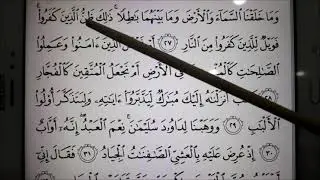 وَمَا خَلَقْنَا السَّمَآءَ وَالْأَرْضَ وَمَا بَيْنَهُمَا بَٰطِلًا ۚ ذَٰلِكَ ظَنُّ الَّذِينَ كَفَرُوا۟ ۚ
فَوَيْلٌ لِّلَّذِينَ كَفَرُوا۟ مِنَ النَّارِ ﴿٢٧﴾ الَّذِينَ ءَامَنُوا۟ وَعَمِلُوا۟
الصَّٰلِحَٰتِ فِي الْأَرْضِ أَمْ نَجْعَلُ الْمُتَّقِينَ كَالْفُجَّارِ
أَنزَلْنَٰهُ إِلَيْكَ مُبَٰرَكٌ لِّيَدَّبَّرُوٓا۟ ءَايَٰتِهِۦ وَلِيَتَذَكَّرَ أُو۟لُوا۟
الْأَلْبَٰبِ ﴿٢٩﴾ وَوَهَبْنَا لِدَاوُۥدَ سُلَيْمَٰنَ ۚ نِعْمَ الْعَبْدُ ۖ إِنَّهُۥٓ أَوَّابٌ
﴿٣٠﴾ إِذْ عُرِضَ عَلَيْهِ بِالْعَشِيِّ الصَّٰفِنَٰتُ الْجِيَادُ ﴿٣١﴾ فَقَالَ إِنِّيٓ